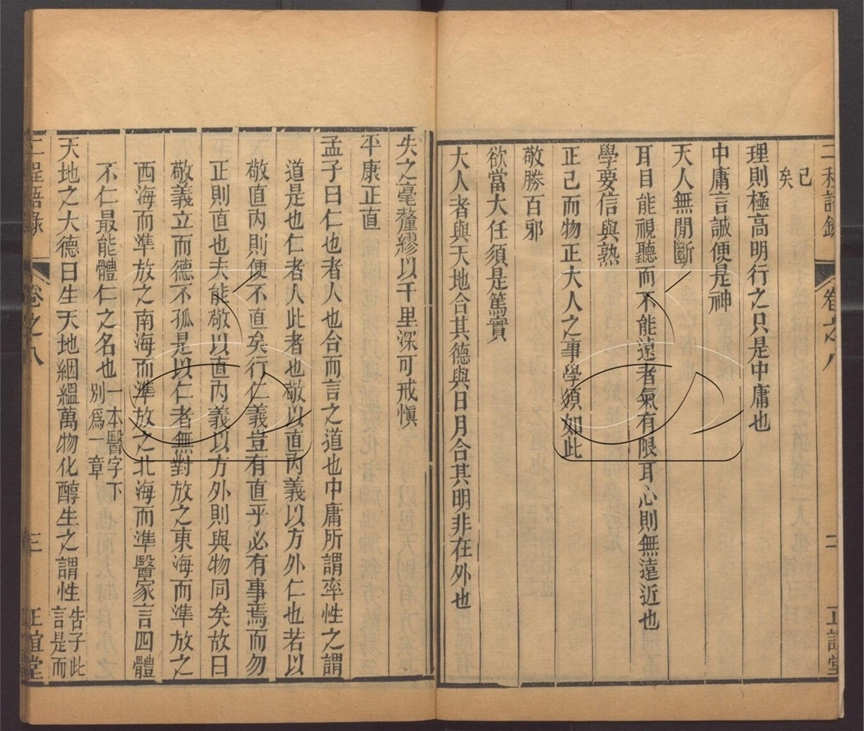 二程語錄 卷之八 二 正誼堂
已矣
理則極高明行之只是中庸也
中庸言誠便是神
天人無閒斷
耳目能視聽而不能遠者氣有限耳心則無遠近也
學要信與熟
正己而物正大人之事學須如此
敬勝百邪
欲當大任須是篤實
大人者與天地合其德與日月合其明非在外也
失之毫釐繆以千里深可戒慎
平康正直
孟子曰仁也者人也合而言之道也中庸所謂率性之謂
道是也仁者人此者也敬以直內義以方外仁也若以
敬直內則便不直矣行仁義豈有直乎必有事焉而勿
正則直也夫能敬以直內義以方外則與物同矣故曰
敬義立而德不孤是以仁者無對放之東海而準放之
西海而準放之南海而準放之北海而準醫家言四體
不仁最能體仁之名也一本醫字下別爲一章
天地之大德曰生天地絪縕萬物化醇生之謂性告子此言是而
二程語錄 卷之八 三 正誼堂